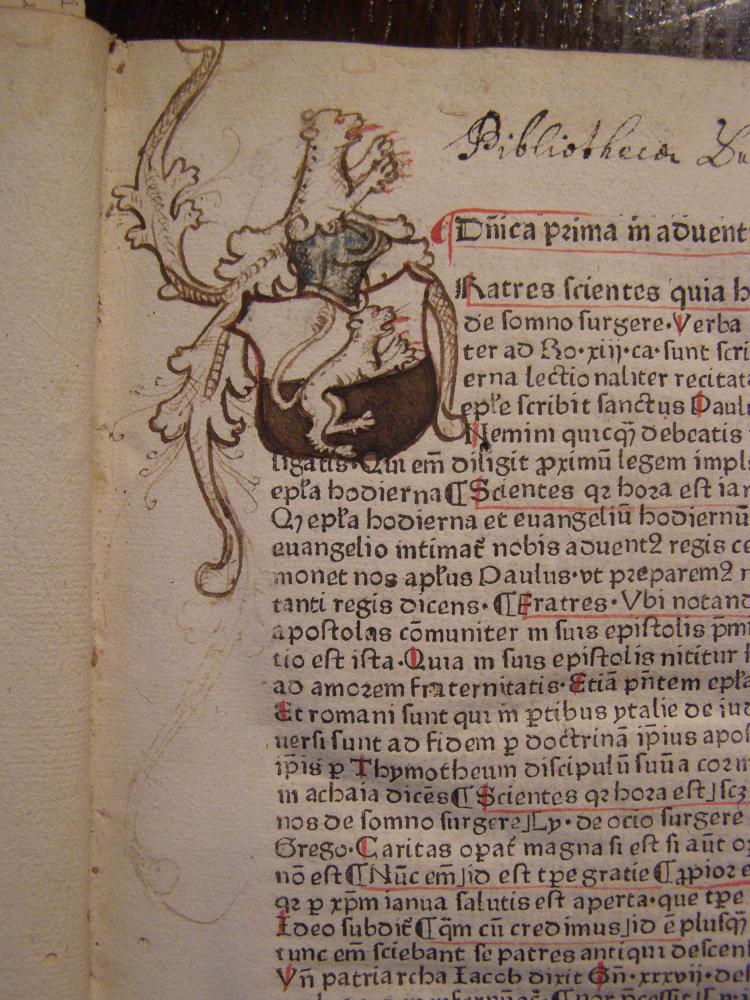 Bibliothecæ
Dñica prima in aduent
Ratres scientes quia h
de somno surgere. Verba
ter ad Ro. xiij. ca. sunt scri
erna lectionaliter recitat
epl'e scribit sanctus Paulu
Nemini quicqȝ debeatis
ligatis. Qui em̄ diligit ꝓximū legem impl
epl'a hodierna ¶ Scientes qꝛ hoꝛa est iam
Qꝫ epl'a hodierna et euangeliū hodiernū
euangelio intimat̄ nobis aduentꝰ regis ce
monet nos apl'us Paulus. vt pꝛeparemꝰ
tanti regis dicens. ¶ Fratres. Vbi notand
apostolas cōmuniter in suis epistolis pm̄i
tio est ista. Quia in suis epistolis nititur
ad amoꝛem fraternitatis. Etiā pn̄tem epl'a
Et romani sunt qui in ꝑtibus ytalie de iud
uersi sunt ad fidem ꝑ doctrinā ip̄ius apos
ip̄is ꝑ Thymotheum discipulū suū a coꝛin
in achaia dicēs ¶ Scientes qꝛ hoꝛa est] scꝫ
nos de somno surgere] Ly. de ocio surgere
Grego. Caritas opat̄ magna si est si aūt
nō est ¶ Nūc em̄] id est tp̄e gratie ¶ ꝓpioꝛ
qꝛ ꝑ xp̄m ianua salutis est aperta. que tp̄e
Ideo subdit̄ ¶ qm̄ cū credimus] id ē plusqȝ
tunc em̄ sciebant se patres antiqui descen
Vn̄ patriarcha Iacob dixit Gn̄. xxxvij. des